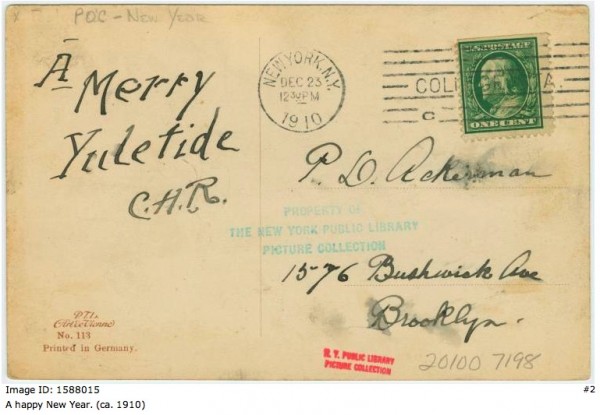 POC - New Year
A
Merry
Yuletide
C.A.R.
NEW YORK, N.Y.
DEC 23
12 PM
1910
COL
A.
C
U.S. POSTAGE
ONE CENT
P. D. Ackerman
PROPERTY OF
THE NEW YORK PUBLIC LIBRARY
PICTURE COLLECTION
1576 Bushwick Ave
Brooklyn.
No. 113
Printed in Germany.
N. Y. PUBLIC LIBRARY
PICTURE COLLECTION
20100 7198
Image ID: 1588015
#2
A happy New Year. (ca. 1910)